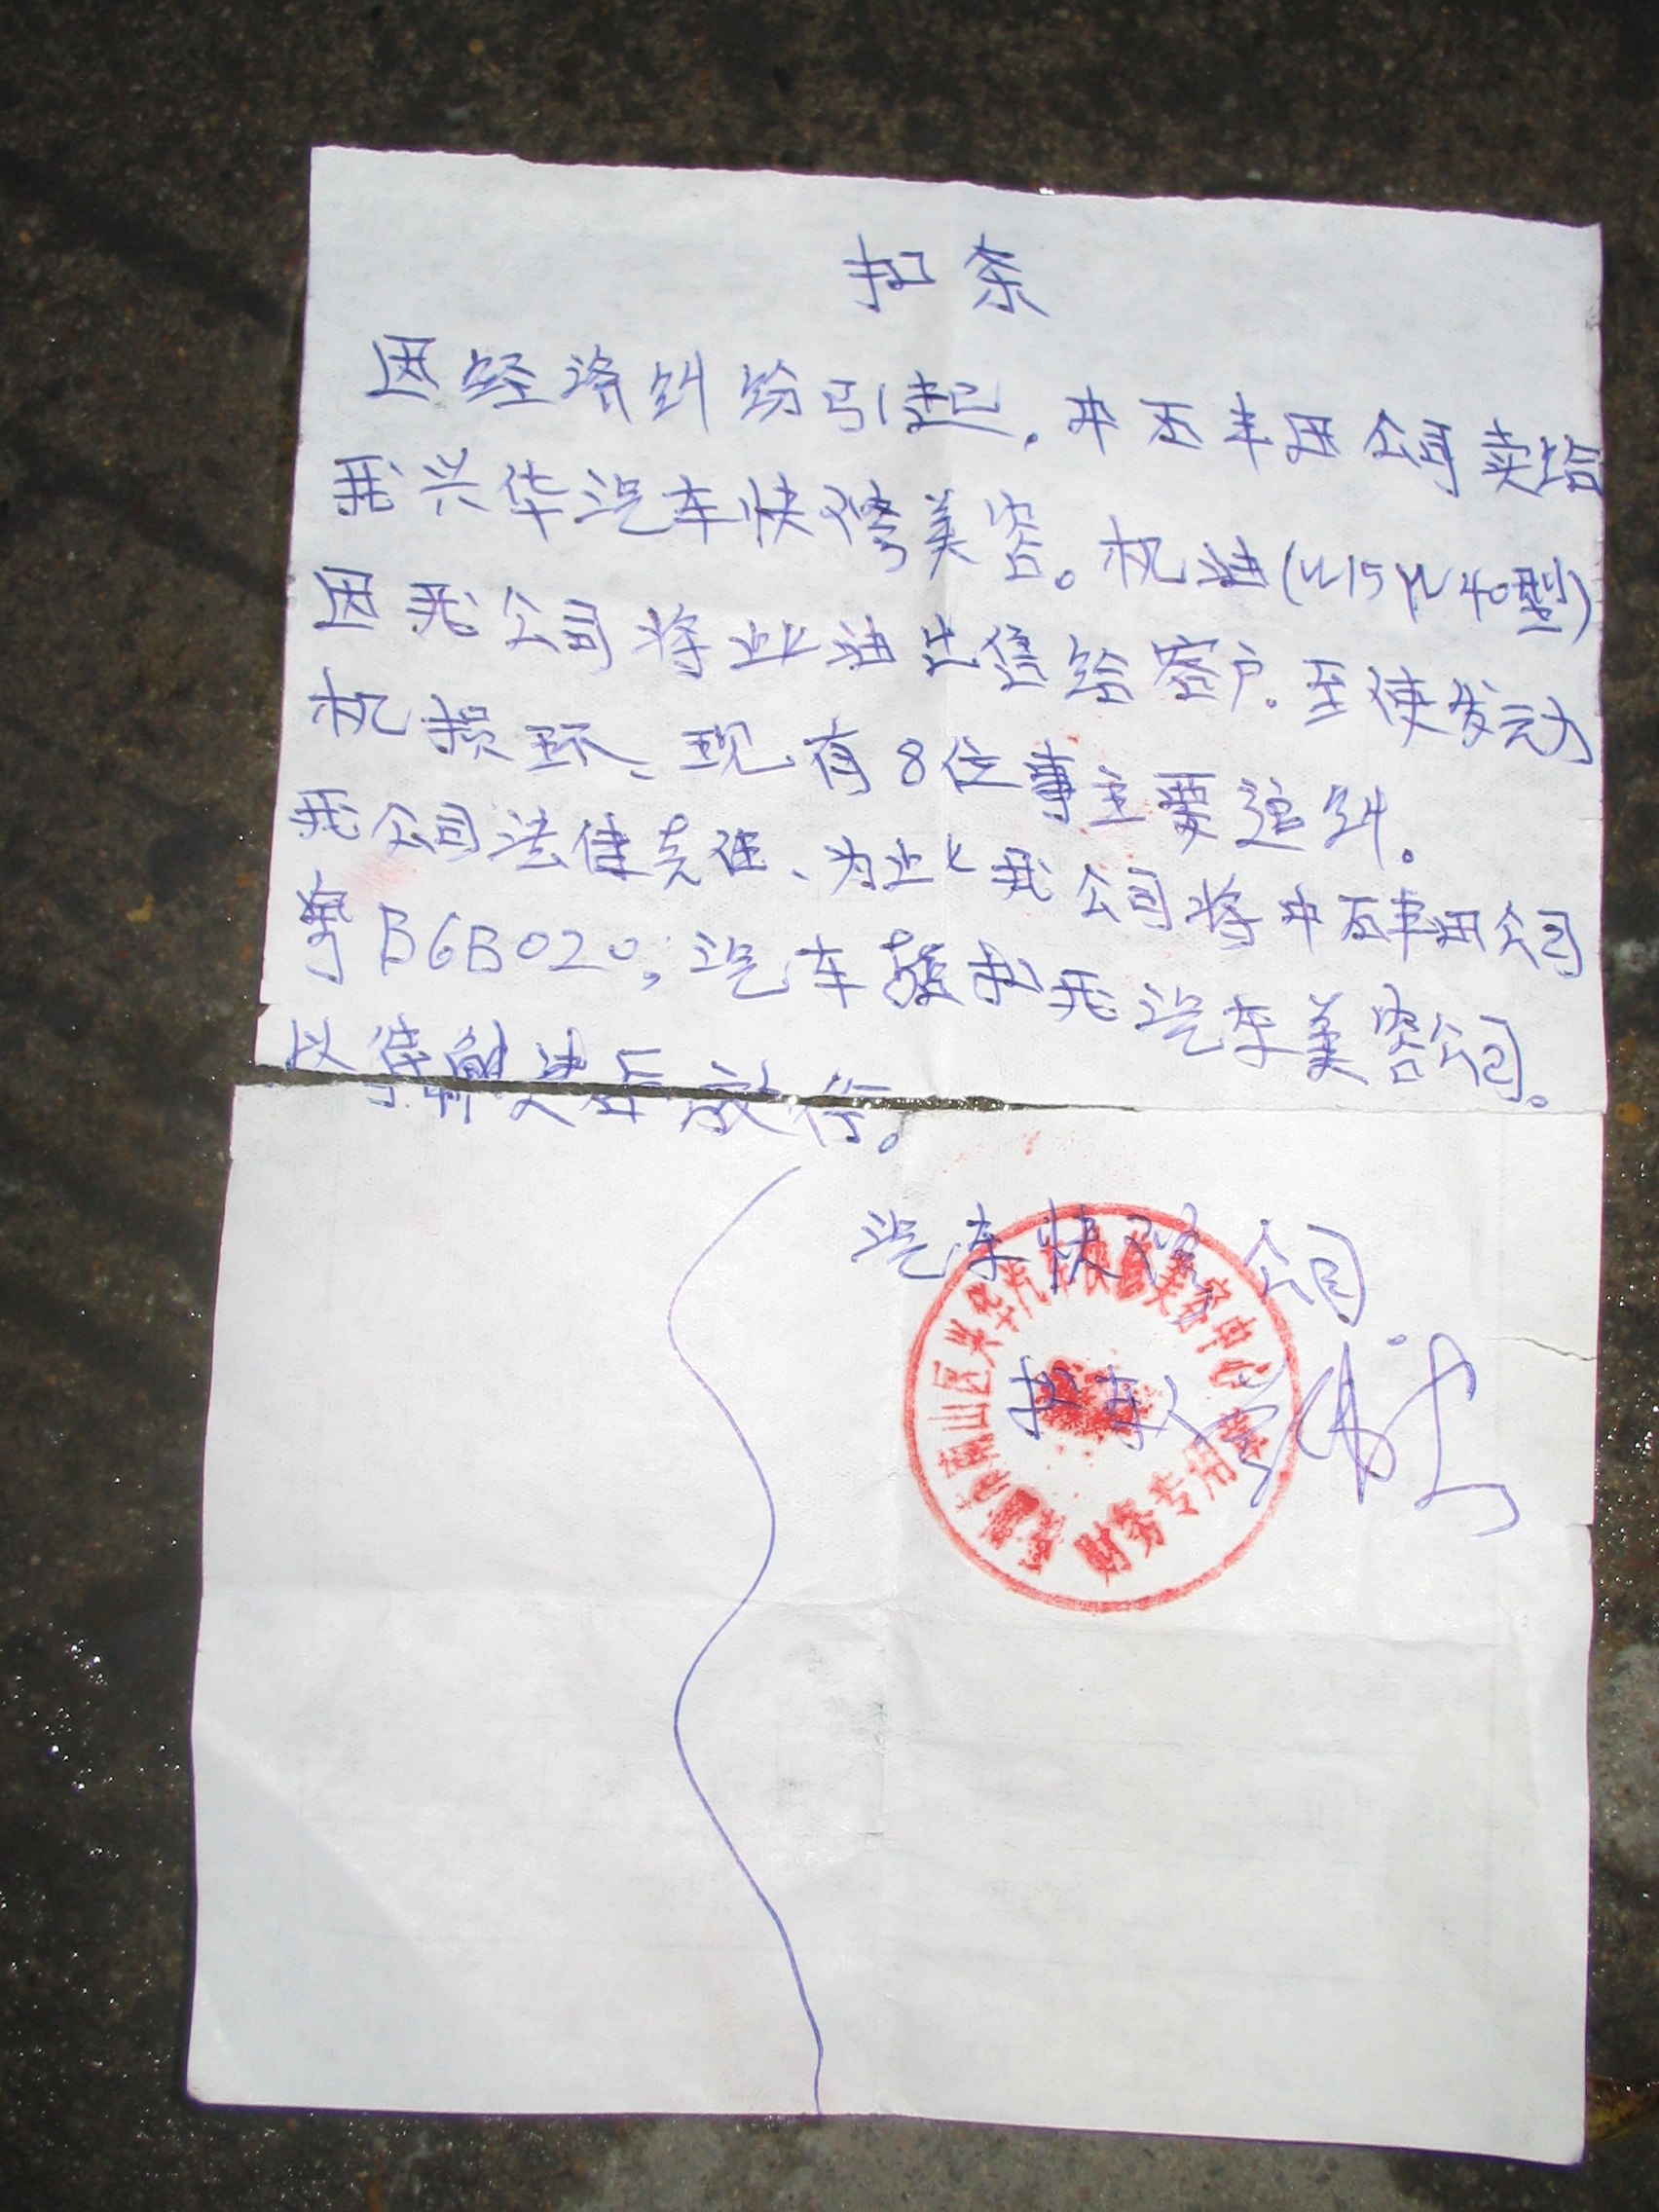 扣条
因经济纠纷引起,中石丰田公司卖给
我兴华汽车快修美容。机油(W15W40型)
因我公司将此油出售给客户.至使发动
机损坏、现有8位事主要追纠。
我公司法律责任、为此我公司将中石丰田公司
粤B6B020,汽车暂扣我汽车美容公司。
以待解决后放行。
汽车快修公司
扣车人
南山区兴华汽车快修美容中心
财务专用章